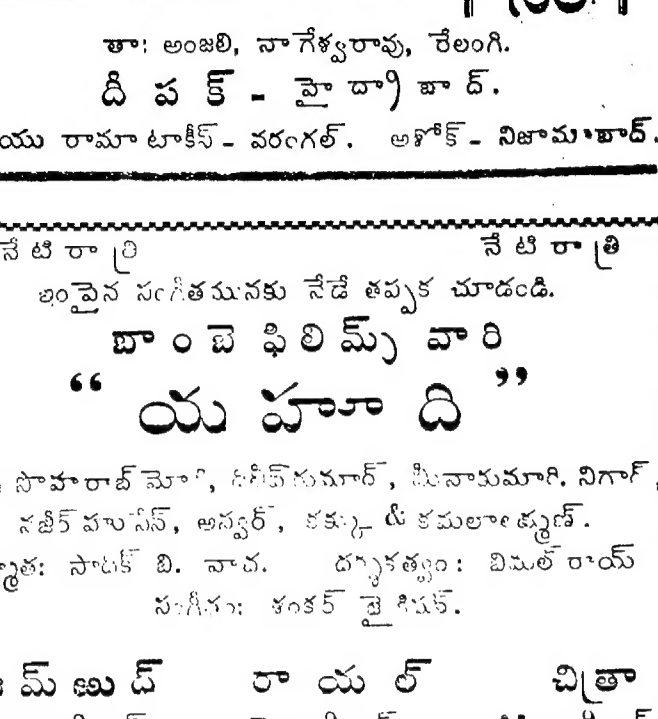 తా: అంజలి, నాగేశ్వరరావు, రేలంగి.
దీపక్ - హైద్రాబాద్.
యు రామా టాకీస్ - వరంగల్. అశోక్ - నిజామాబాద్.
నేటి రాత్రి నేటి రాత్రి
ఇంపైన సంగీతమునకు నేడే తప్పక చూడండి.
బాంబె ఫిలిమ్స్ వారి
“యహూది”
సొహరాబ్ మోదీ, దిలీప్ కుమార్, మీనాకుమారి. నిగార్,
నజీర్ హుసేన్, అన్వర్, కక్కు & కమలాలక్ష్మణ్.
బి. వాచ. దర్శకత్వం: బిమల్ రాయ్
సంగీతం: శంకర్ జైకిషన్.
రాయల్ చిత్రా